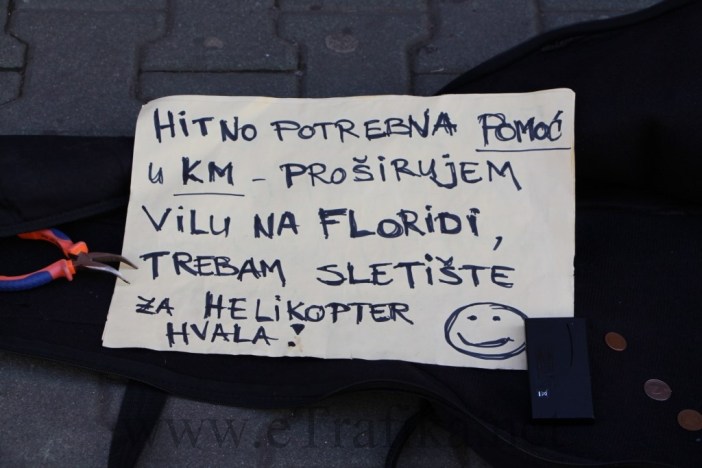 HITNO POTREBNA POMOĆ
u KM - PROŠIRUJEM
VILU NA FLORIDI,
TREBAM SLETIŠTE
ZA HELIKOPTER
HVALA!
www.eTrafika.net